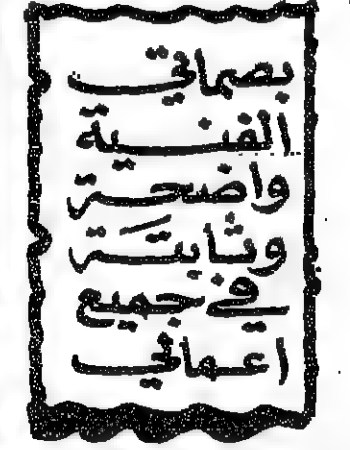 بصماتي
الفنية
واضحة
وثابتة
في جميع
اعمالي